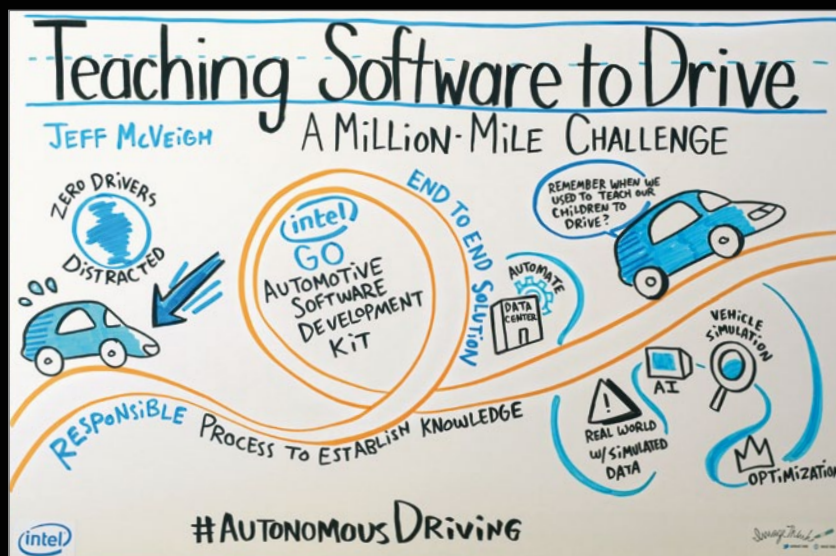 Teaching Software to Drive
JEFF McVEIGH
A MILLION-MILE CHALLENGE
ZERO DRIVERS
DISTRACTED
intel
GO
AUTOMOTIVE
SOFTWARE
DEVELOPMENT
KIT
END TO END SOLUTION
AUTOMATE
DATA
CENTER
REMEMBER WHEN WE
USED TO TEACH OUR
CHILDREN TO
DRIVE?
VEHICLE
SIMULATION
AI
!
REAL WORLD
W/ SIMULATED
DATA
OPTIMIZATION
RESPONSIBLE PROCESS TO ESTABLISH KNOWLEDGE
#AUTONOMOUS DRIVING
intel
ImageThink